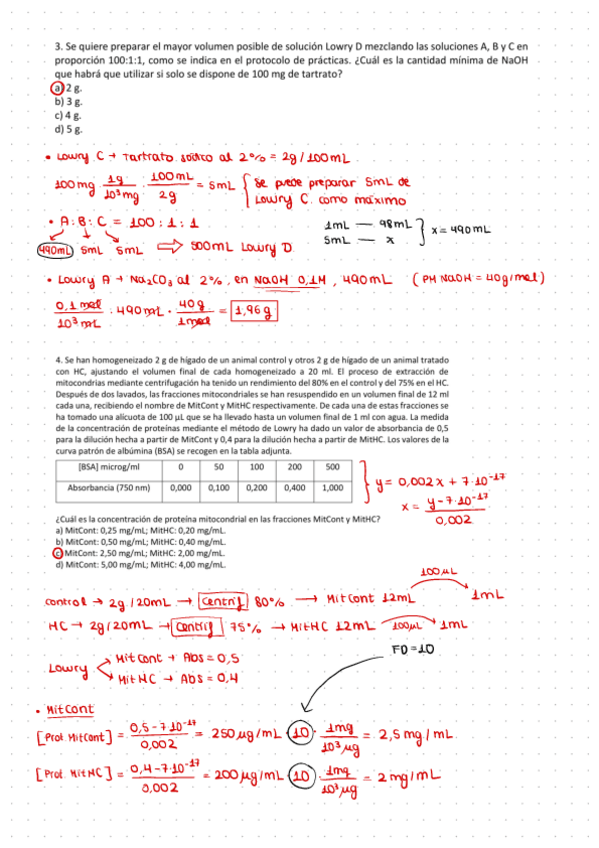 3. Se quiere preparar el mayor volumen posible de solución Lowry D mezclando las soluciones A, B y C en
proporción 100:1:1, como se indica en el protocolo de prácticas. ¿Cuál es la cantidad mínima de NaOH
que habrá que utilizar si solo se dispone de 100 mg de tartrato?
a) 2 g.
b) 3 g.
c) 4 g.
d) 5 g.
• Lowry C → Tartrato sódico al 2% = 2g/100mL
100mg · 1g/10³mg · 100mL/2g = 5mL { Se puede preparar 5mL de
Lowry C como máximo
• A:B:C = 100:1:1
490mL 5mL 5mL ⇒ 500mL Lowry D
1mL — 98mL
5mL — x } x = 490mL
• Lowry A → Na₂CO₃ al 2%, en NaOH 0,1M, 490mL (PM NaOH = 40g/mol)
0,1 mol/10³ mL · 490mL · 40g/1mol = 1,96g
4. Se han homogeneizado 2 g de hígado de un animal control y otros 2 g de hígado de un animal tratado
con HC, ajustando el volumen final de cada homogeneizado a 20 ml. El proceso de extracción de
mitocondrias mediante centrifugación ha tenido un rendimiento del 80% en el control y del 75% en el HC.
Después de dos lavados, las fracciones mitocondriales se han resuspendido en un volumen final de 12 ml
cada una, recibiendo el nombre de MitCont y MitHC respectivamente. De cada una de estas fracciones se
ha tomado una alícuota de 100 µL que se ha llevado hasta un volumen final de 1 ml con agua. La medida
de la concentración de proteínas mediante el método de Lowry ha dado un valor de absorbancia de 0,5
para la dilución hecha a partir de MitCont y 0,4 para la dilución hecha a partir de MitHC. Los valores de la
curva patrón de albúmina (BSA) se recogen en la tabla adjunta.
[BSA] microg/ml 0 50 100 200 500
Absorbancia (750 nm) 0,000 0,100 0,200 0,400 1,000
y = 0,002x + 7·10⁻¹⁷
x = y-7·10⁻¹⁷/0,002
¿Cuál es la concentración de proteína mitocondrial en las fracciones MitCont y MitHC?
a) MitCont: 0,25 mg/mL; MitHC: 0,20 mg/mL.
b) MitCont: 0,50 mg/mL; MitHC: 0,40 mg/mL.
c) MitCont: 2,50 mg/mL; MitHC: 2,00 mg/mL.
d) MitCont: 5,00 mg/mL; MitHC: 4,00 mg/mL.
100µL
control → 2g/20mL → Centrif 80% → MitCont 12mL 1mL
HC → 2g/20mL → Centrif 75% → MitHC 12mL 100µL 1mL
FD=10
Lowry
MitCont → Abs = 0,5
MitHC → Abs = 0,4
• MitCont
[Prot. MitCont] = 0,5-7·10⁻¹⁷/0,002 = 250 µg/mL · 10 · 1mg/10³µg = 2,5 mg/mL
[Prot. MitHC] = 0,4-7·10⁻¹⁷/0,002 = 200 µg/mL · 10 · 1mg/10³µg = 2 mg/mL